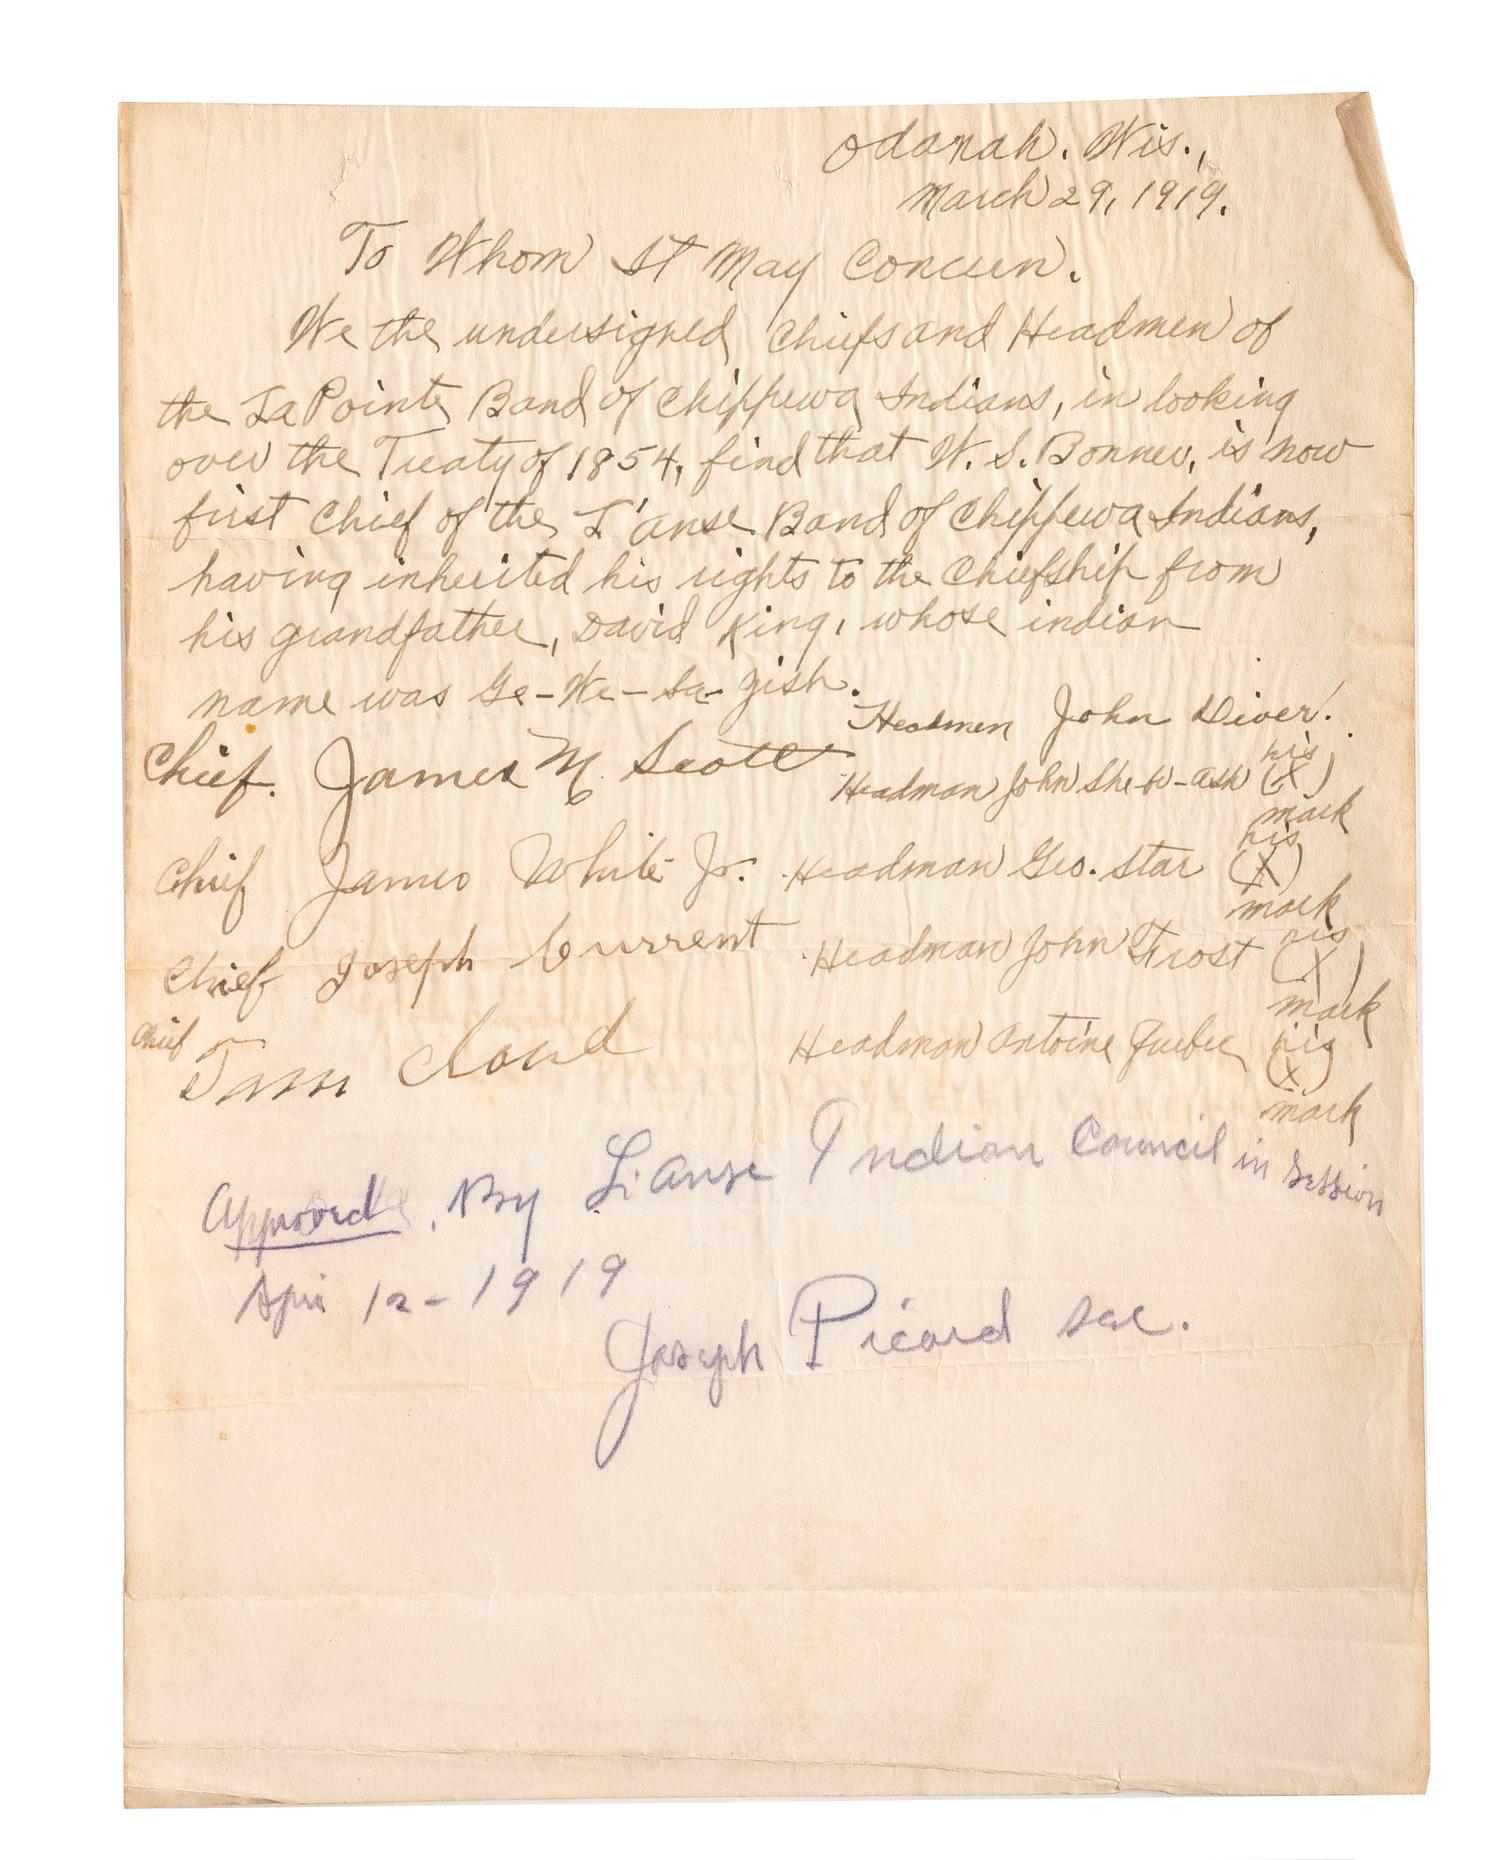 Odanah. Wis.,
March 29, 1919.
To Whom It May Concern.
We the undersigned Chiefs and Headmen of
the La Pointe Band of Chippewa Indians, in looking
over the Treaty of 1854, find that W. S. Bonner, is now
first Chief of the L'anse Band of Chippewa Indians,
having inherited his rights to the Chiefship from
his grandfather, David King, whose indian
name was Ge-We-Sa-gish.
Headmen John Diver.
Chief. James M Scott
Headman John She-w-ash his (X) mark
Chief James White Jr.
Headman Geo. Star his (X) mark
Chief Joseph Current
Headman John Frost his (X) mark
Chief Tom Cloud
Headman Antoine Quebec his (X) mark
Approved. By L'anse Indian Council in Session
Apri 12-1919
Joseph Picard sec.